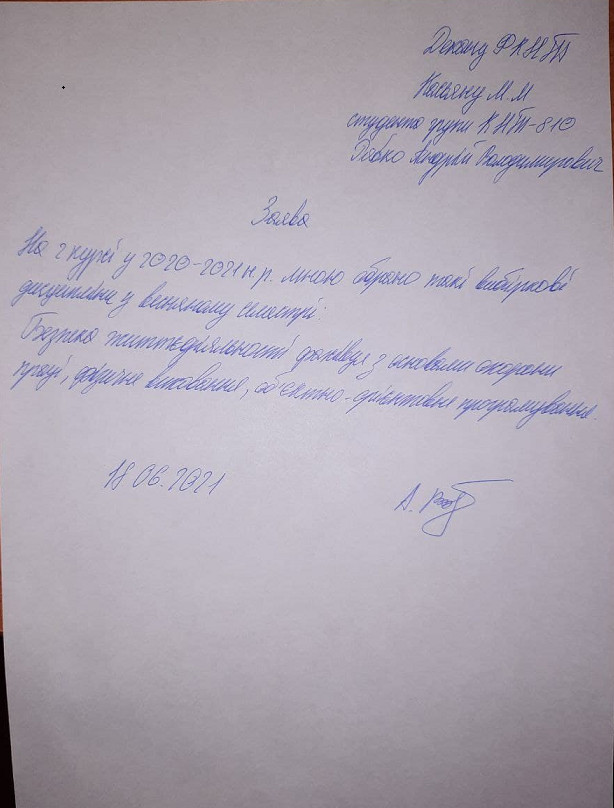 Декану ФКНТ
Касьяну М.М
студента групи КНТ-810
Андрій Володимирович
Заява
На 2 курсі у 2020-2021 н.р. мною обрано такі вибіркові
дисципліни у весняному семестрі:
Безпека життєдіяльності фахівця з основами охорони
праці, фізичне виховання, об'єктно-орієнтовне програмування.
18.06.2021
А.